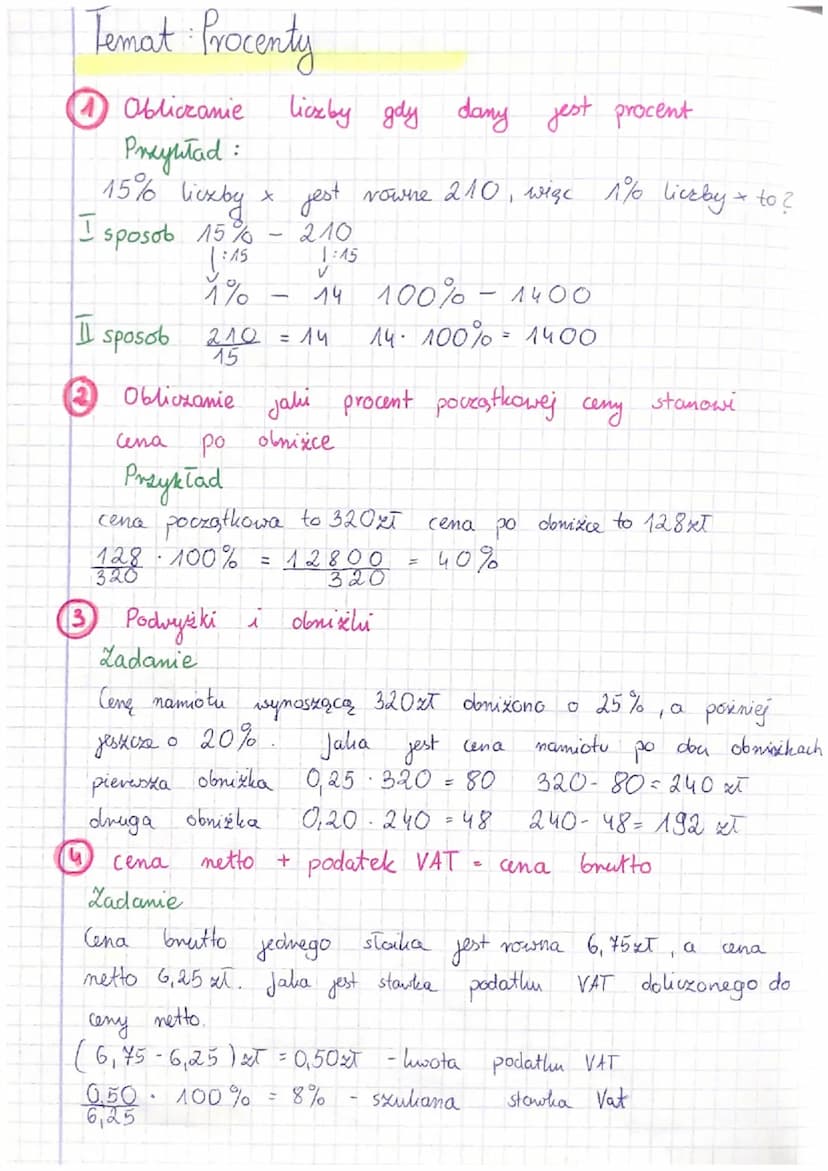 Temat: Procenty
1 Obliczanie liczby gdy dany jest procent
Przykład:
15% liczby x jest równe 210, więc 1% liczby x to?
I sposob 15% – 210
|:15 |:15
1% – 14 100% – 1400
II sposob 210/15 = 14 14 · 100% = 1400
2 Obliczanie jaki procent początkowej ceny stanowi
cena po obniżce
Przykład
cena początkowa to 320zł cena po obniżce to 128zł
128/320 · 100% = 12800/320 = 40%
3 Podwyżki i obniżki
Zadanie
Cenę namiotu wynoszącą 320zł obniżono o 25%, a poźniej
jeszcze o 20%. Jaka jest cena namiotu po obu obniżkach
pierwsza obniżka 0,25 · 320 = 80 320 - 80 = 240 zł
druga obniżka 0,20 · 240 = 48 240 - 48 = 192 zł
4 cena netto + podatek VAT = cena brutto
Zadanie
Cena brutto jednego słoika jest rowna 6,75zł, a cena
netto 6,25 zł. Jaka jest stawka podatku VAT doliczonego do
ceny netto.
(6,75 - 6,25) zł = 0,50zł - kwota podatku VAT
0,50/6,25 · 100% = 8% - szukana stawka Vat